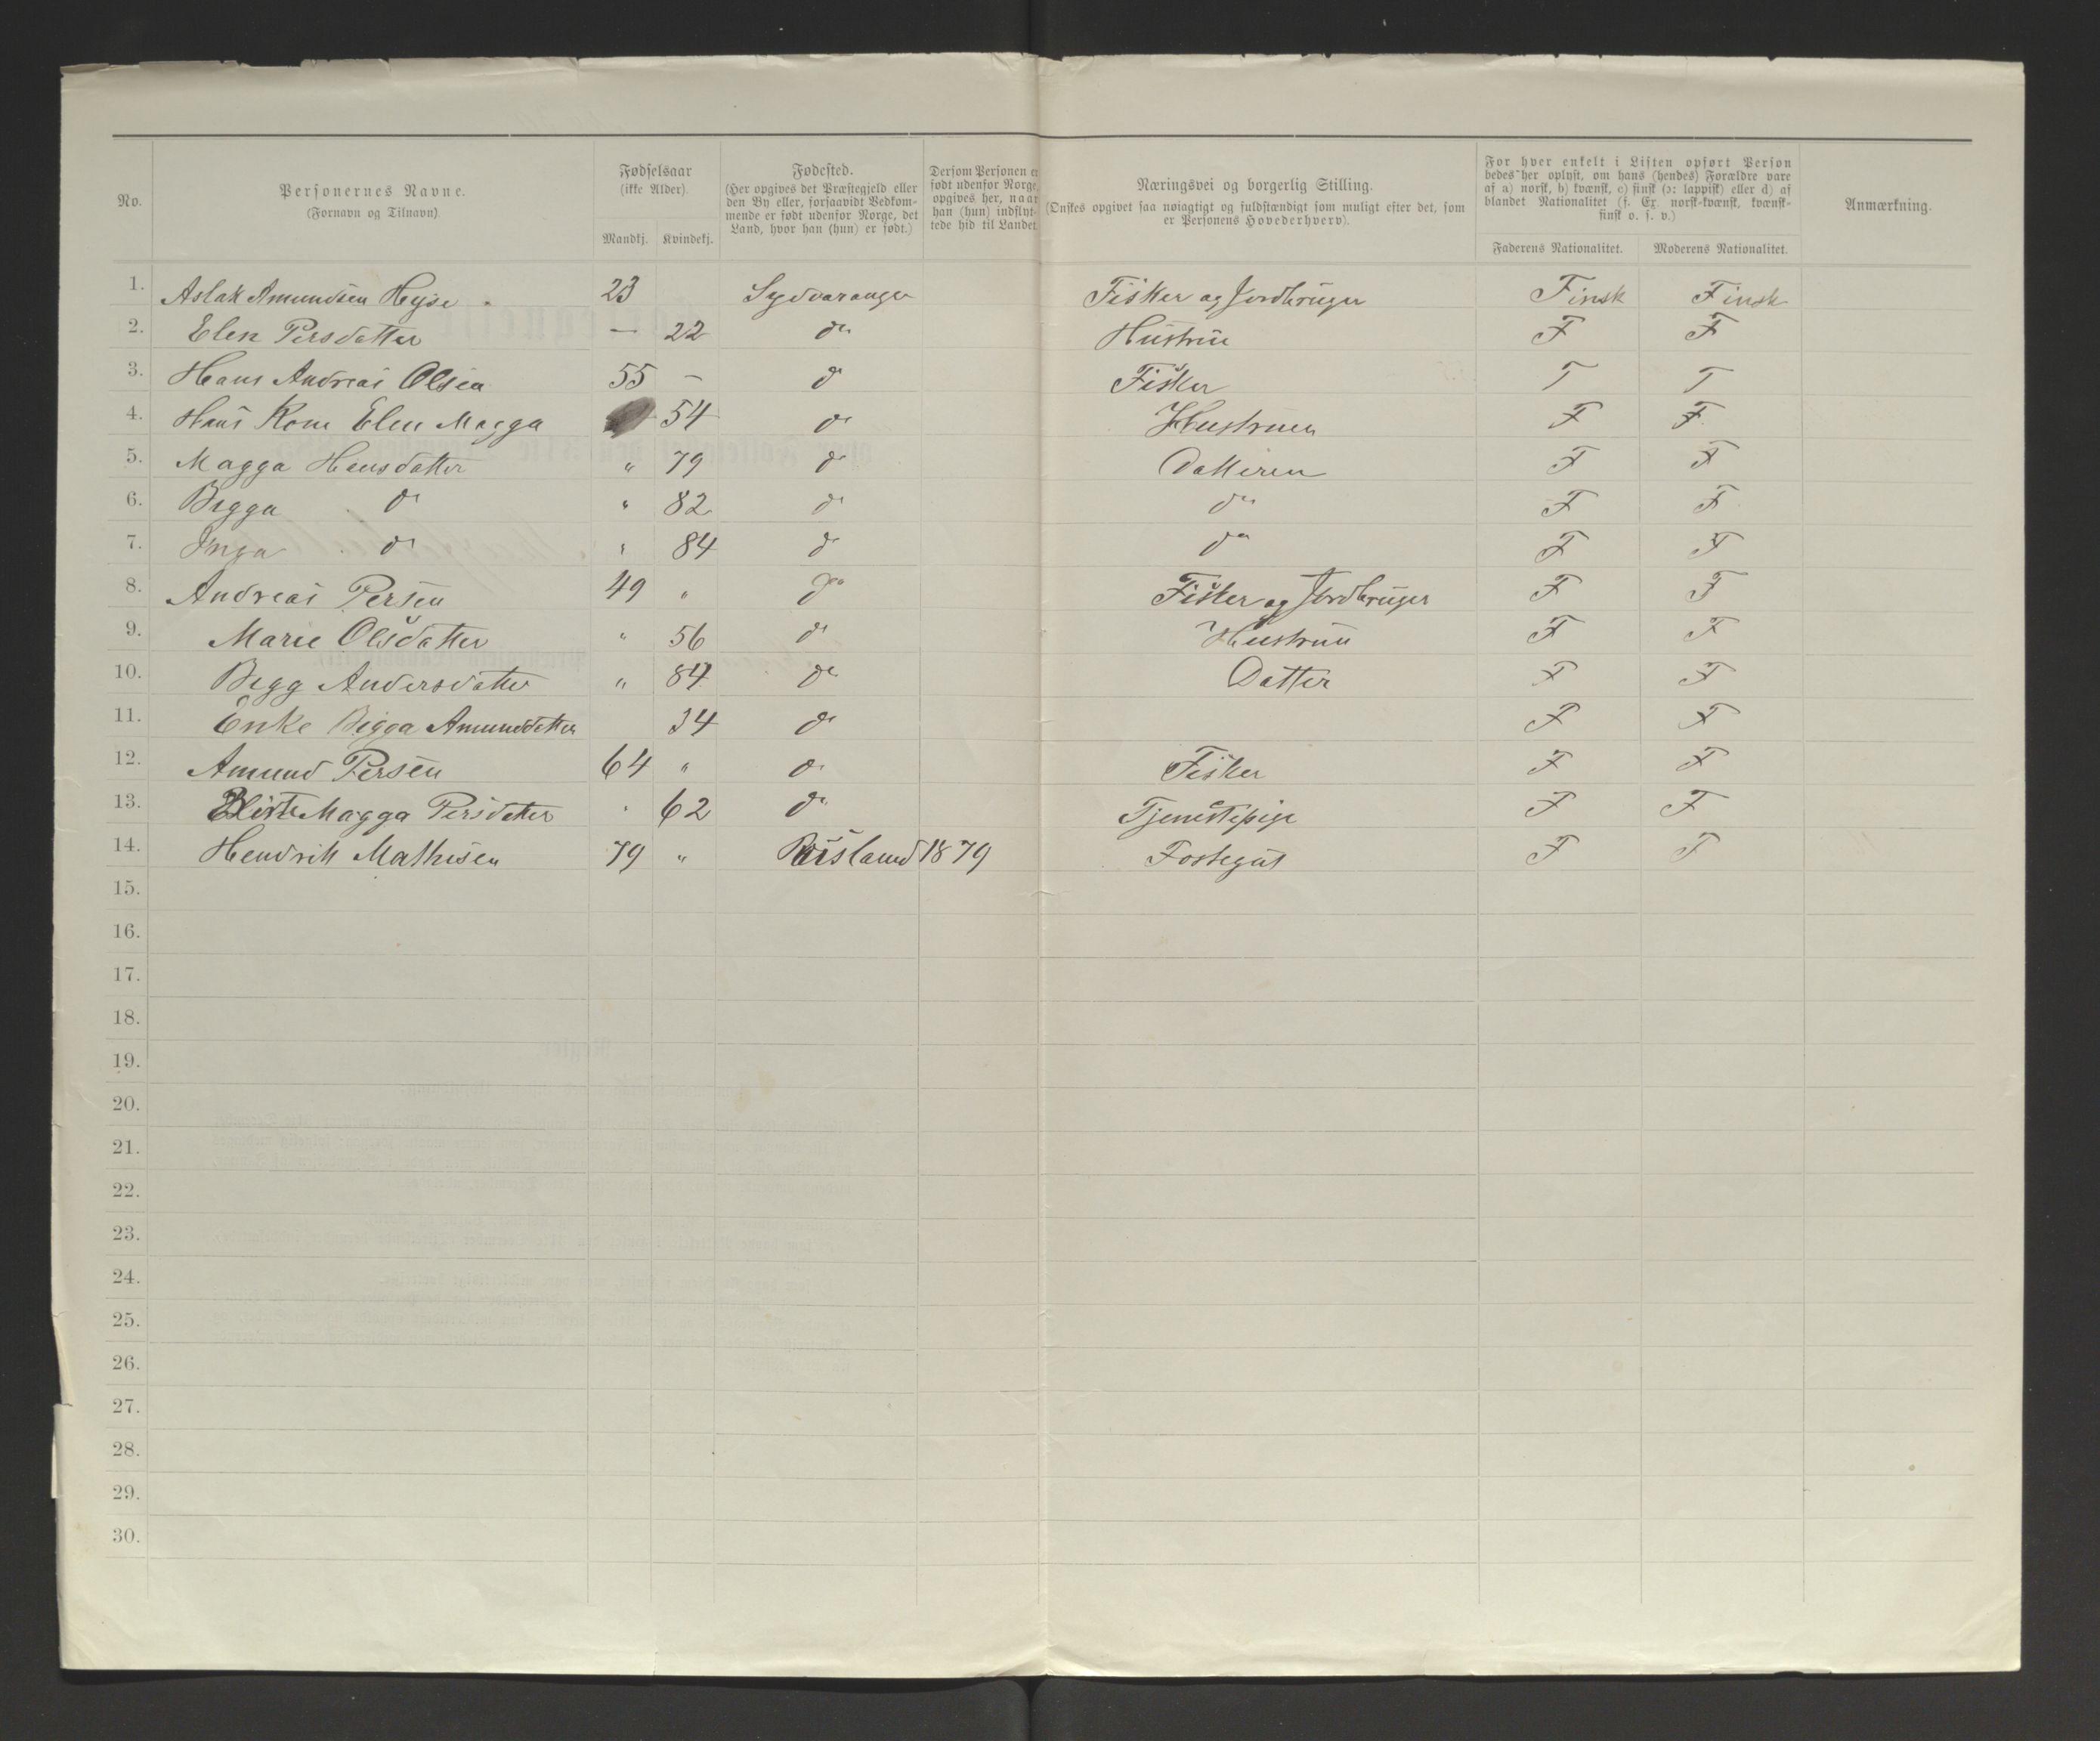 No.
Personernes Navne.
(Fornavn og Tilnavn).
Fødselsaar
(ikke Alder).
Mandkj. Kvindekj.
Fødested.
(Her opgives det Præstegjeld eller
den By eller, forsaavidt Vedkom-
mende er født udenfor Norge, det
Land, hvor han (hun) er født.)
Dersom Personen er
født udenfor Norge,
opgives her, naar
han (hun) indflyt-
tede hid til Landet.
Næringsvei og borgerlig Stilling.
(Ønskes opgivet saa nøiagtigt og fuldstændigt som muligt efter det, som
er Personens Hovederhverv).
For hver enkelt i Listen opført Person
bedes her oplyst, om hans (hendes) Forældre vare
af a) norsk, b) kvænsk, c) finsk (ɔ: lappisk) eller d) af
blandet Nationalitet (f. Ex. norsk-kvænsk, kvænsk-
finsk o. s. v.)
Faderens Nationalitet. Moderens Nationalitet.
Anmærkning.
1. Aslak Amundsen 23 Sydvaranger Fisker og Jordbruger Finsk Finsk
2. Elen Persdatter — 22 do Hustru F F
3. Hans Andreas Olsen 55 – do Fisker F F
4. Hans Kone Elen Magga 54 do Hustruen F F
5. Magga Hansdatter " 79 do Datteren F F
6. Bigga do " 82 do do F F
7. Inga do " 84 do do F F
8. Andreas Persen 49 " do Fisker og Jordbruger F F
9. Marie Olsdatter " 56 do Hustru F F
10. Bigg Andersdatter " 84 do Datter F F
11. Enke Bigga Amundsdatter 34 do F F
12. Amund Persen 64 " do Fisker F F
13. Magga Persdatter " 62 do Tjenestepige F F
14. Hendrik Mathisen 79 " 1879 Fostegut F F
15.
16.
17.
18.
19.
20.
21.
22.
23.
24.
25.
26.
27.
28.
29.
30.